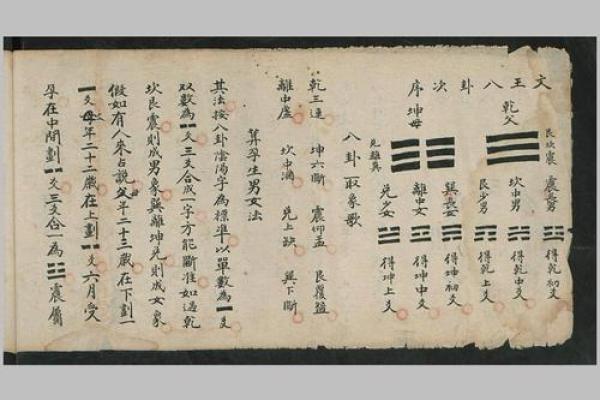 文王八卦次序
乾父
坤母
艮坎震
震長男 得乾初爻
坎中男 得乾中爻
艮少男 得乾上爻
兌離巽
巽長女 得坤初爻
離中女 得坤中爻
兌少女 得坤上爻
八卦取象歌
乾三連 坤六斷 震仰盂 艮覆盌
離中虛 坎中滿 兌上缺 巽下斷
算孕生男女法
其法按八卦陰陽字為標準以單數為一爻
双數為爻三爻合成一字方能斷準如遇乾
坎艮震則成男象巽離坤兌則成女象
假如有人來占說父年二十三歲在下劃一
爻母年二十二歲在上劃爻六月受
孕在中間劃爻三爻合一為☳震屬